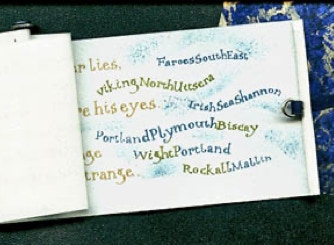 r lies.
FaroesSouthEast
vikingNorthUtsera
e his eyes...
IrishSeaShannon
PortlandPlymouthBiscay
ge
WightPortland
trange.
RockallMallin